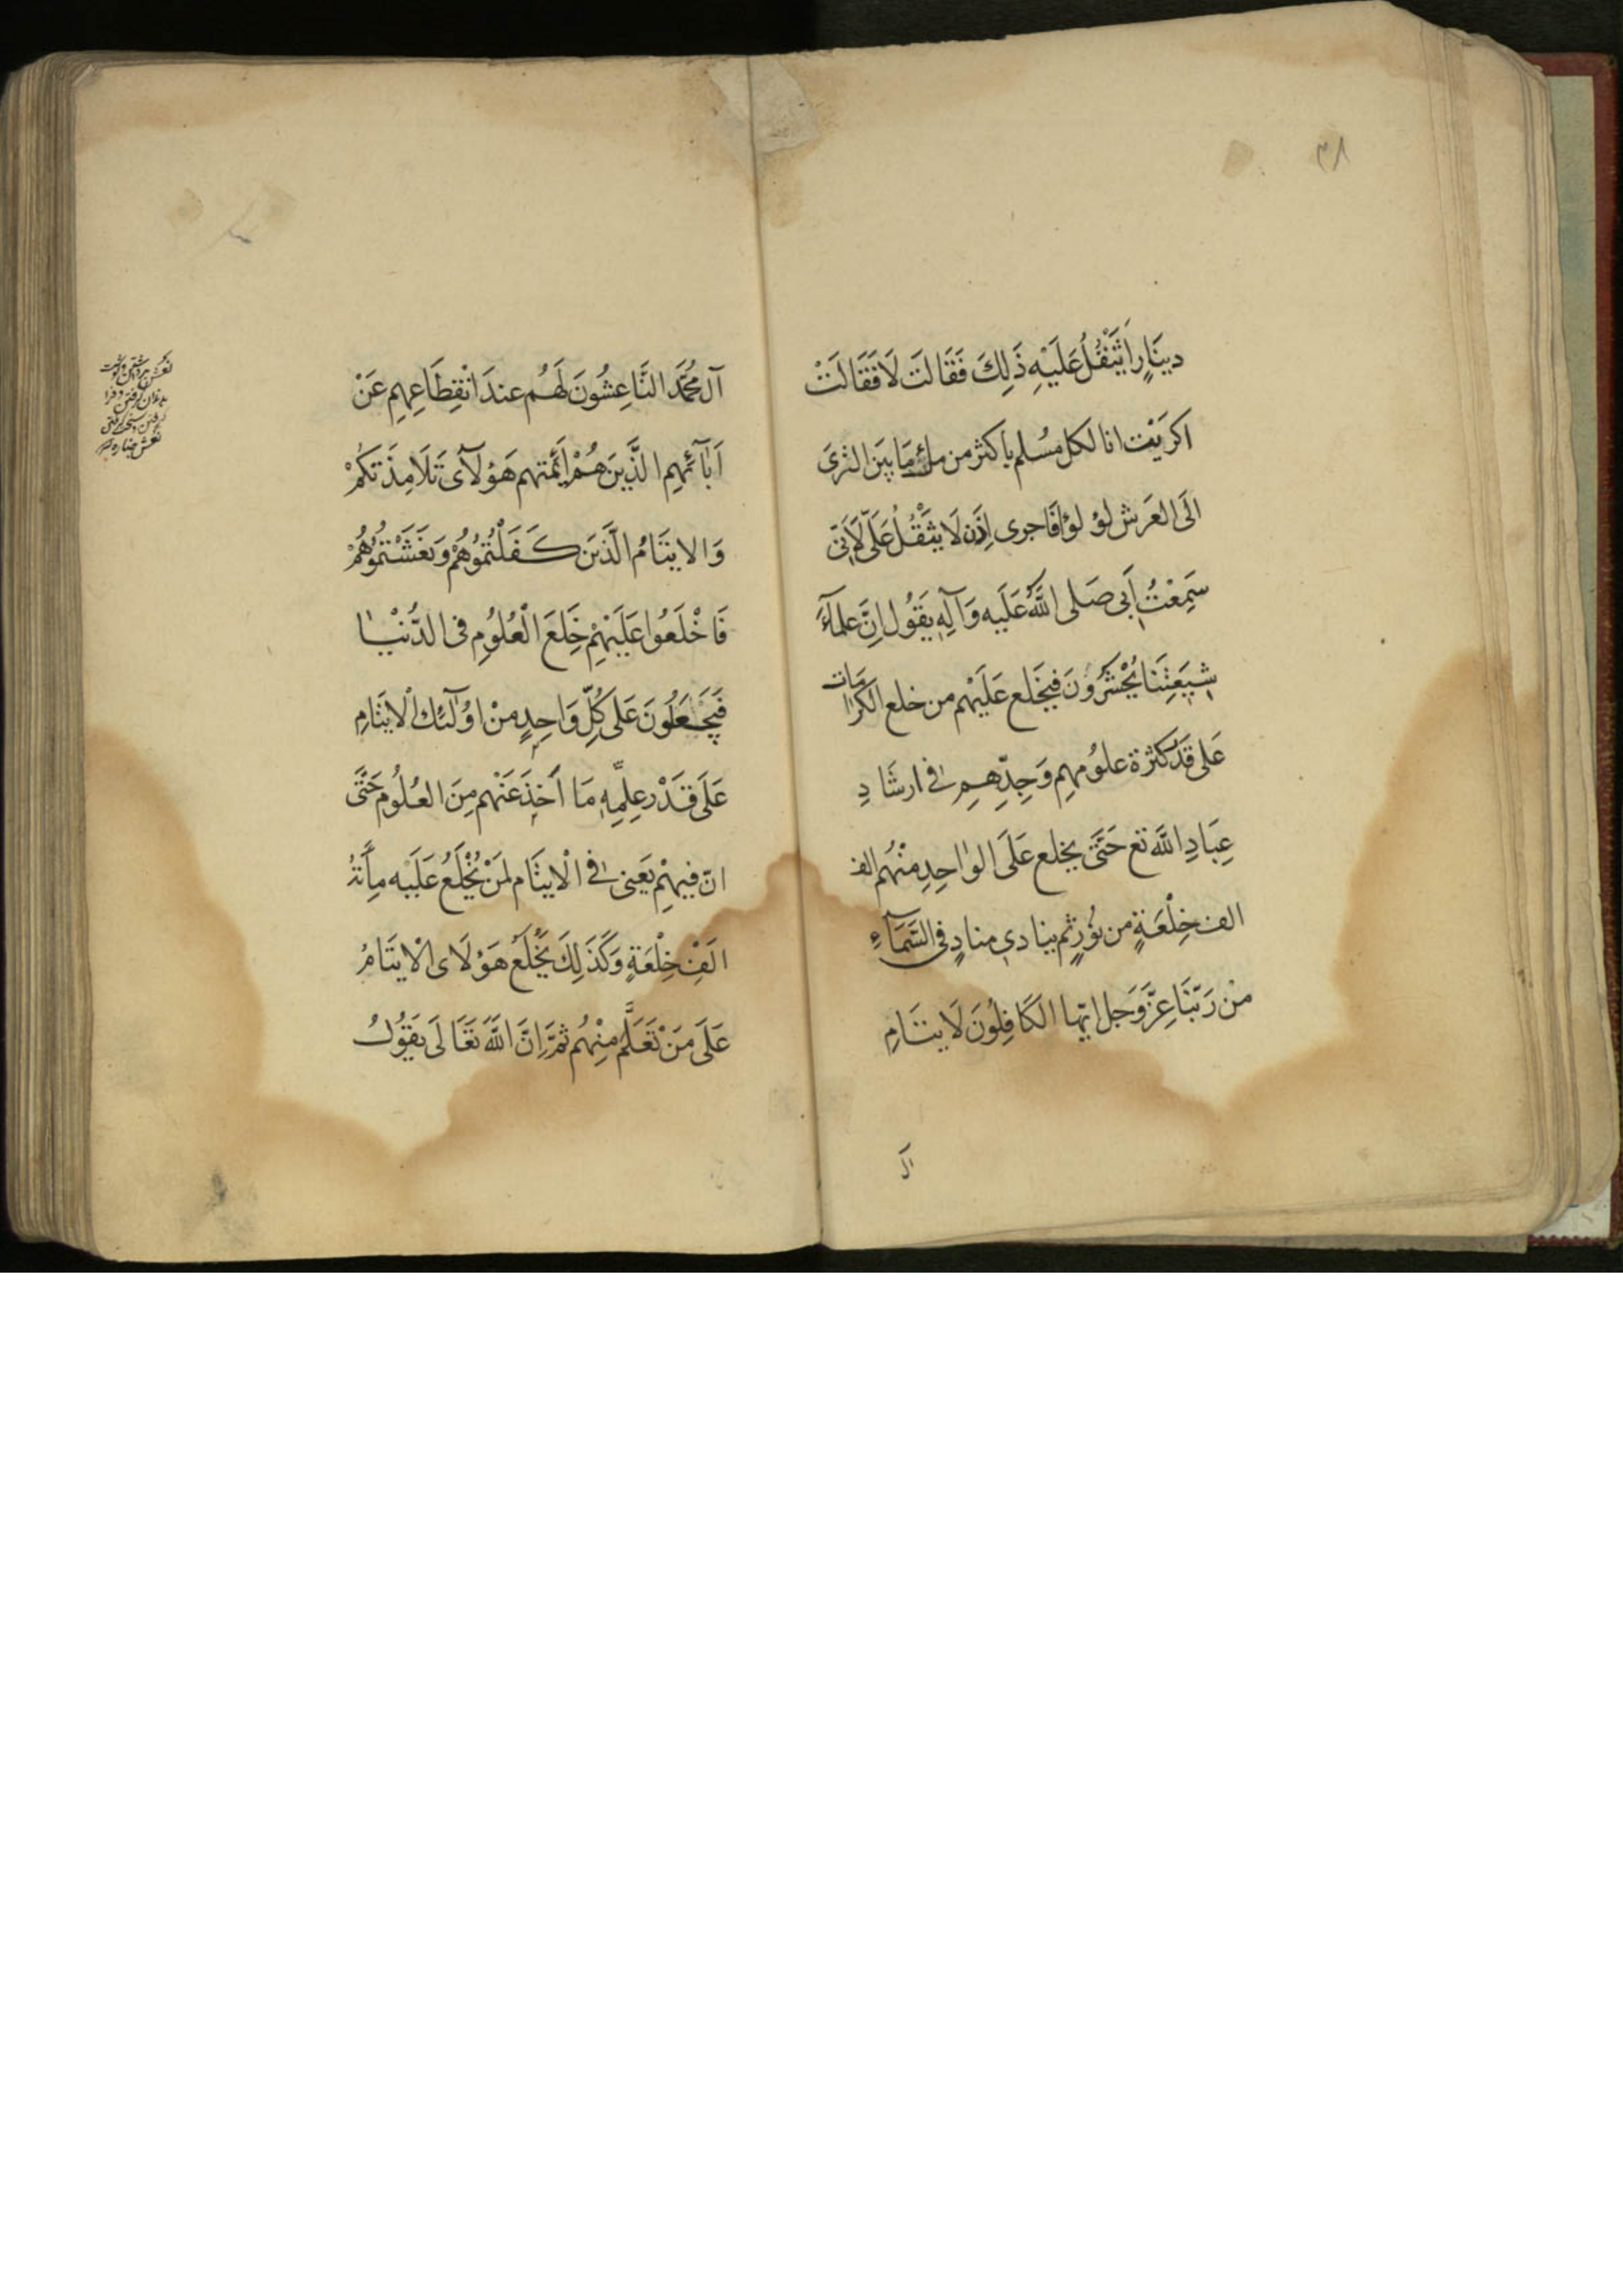 ٣٨
دينَارٍ اَيَثْقُلُ عَلَيْهِ ذَلِكَ فَقَالَتْ لَا فَقَالَتْ
اكريت انا لكل مُسلم باكثر من ملئ مَا بَينَ الثرىَ
الَى العَرشِ لؤلؤا فَاحرى اِذَن لَا يثْقُلُ عَلَىَّ لِاَنّى
سَمِعْتُ اَبى صَلى اللّهُ عَلَيه وَآلِهِ يَقُول اِنَّ علمآءَ
شِيعَتِنَا يُحْشَرُونَ فيُخلَع عَلَيْهم من خلع الكرامَات
عَلى قَدر كثرة علوُمهِم وَجِدِّهِم فى ارشَادِ
عِبَادِ اللّهِ تع حَتَّى يخلع عَلَى الوٰاحِدِ مِنْهُم الف
الف خِلْعَةٍ من نوُرٍ ثم ينادى منادٍ فى السَّمَآءِ
من رَبّنَا عِزَّ وَجَل ايّها الكَافِلُونَ لَايتَامِ
آل
آل مُحَمَّد النَّاعِشُونَ لَهُم عندَ انْقِطَاعِهِم عَنْ
اٰبَآئهِم الَّذِينَ هُمْ اَئِمَّتهم هَؤُلَآى تَلَامِذَتكُمْ
وَالايتَامُ الَّذينَ كَفَلْتُموُهُمْ وَنَعَشْتُموُهُمْ
فَاخْلَعُوا عَلَيْهِمْ خِلَعَ الْعُلُومِ فى الدُّنْيَا
فَيَخْلَعُونَ عَلَى كُلِّ وَاحِدٍ مِنْ اوُلَآئِكَ الْايتَامِ
عَلَى قَدْرِ عِلمِهِ مَا اَخَذَ عَنْهم مِنَ العُلُومِ حَتَّى
انّ فيهِمْ يَعنى فى الْايتَامِ لَمَنْ يُخْلَعُ عَلَيْه مِأَتهُ
الَفْ خِلْعَةٍ وَكَذَلِكَ يُخْلَعُ هَؤُلَاى الْايتَامُ
عَلَى مَنْ تَعَلَّمَ مِنْهُم ثُمَّ اِنَّ اللّهَ تَعَالَى يَقوُلُ